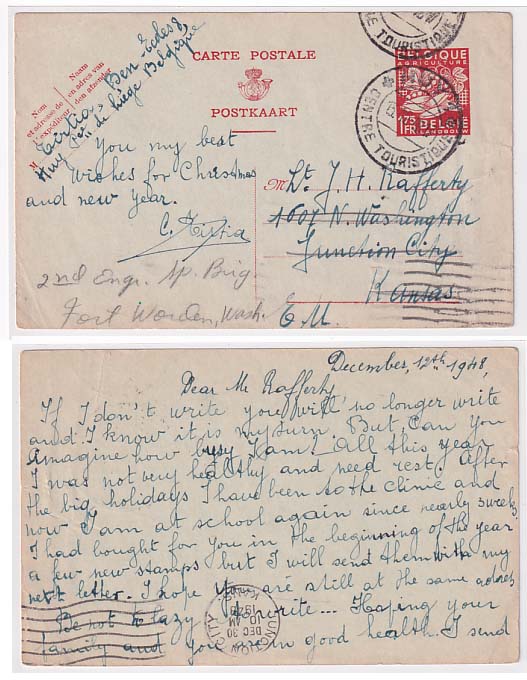 CENTRE TOURISTIQUE
CARTE POSTALE
POSTKAART
Nom
et adresse de
l'expéditeur
Naam
en adres van
den afzender
Tertia, Ben Eddes 8
Huy Pce de Liège Belgique
BELGIQUE
AGRICULTURE
1F75
BELGIË
LANDBOUW
CENTRE TOURISTIQUE
You my best
wishes for Christmas
and new year.
C. Tertia
M Lt. J. H. Rafferty
1607 N. Washington
Junction City
Kansas
E.U.
2nd Engr. Sp. Brig
Fort Worden, Wash.
December, 12th 1948,
Dear Mr Rafferty
If I don't write you will no longer write
and I know it is my turn. But can you
imagine how busy I am! All this year
I was not very healthy and need rest. After
the big holidays I have been to the clinic and
now I am at school again since nearly 3 weeks
I had bought for you in the beginning of the year
a few new stamps but I will send them with my
next letter. I hope you are still at the same adress
Be not to lazy to write... Hoping your
family and you are in good health. I send
JUNCTION CITY
DEC 30
10 AM
1948
KANS.